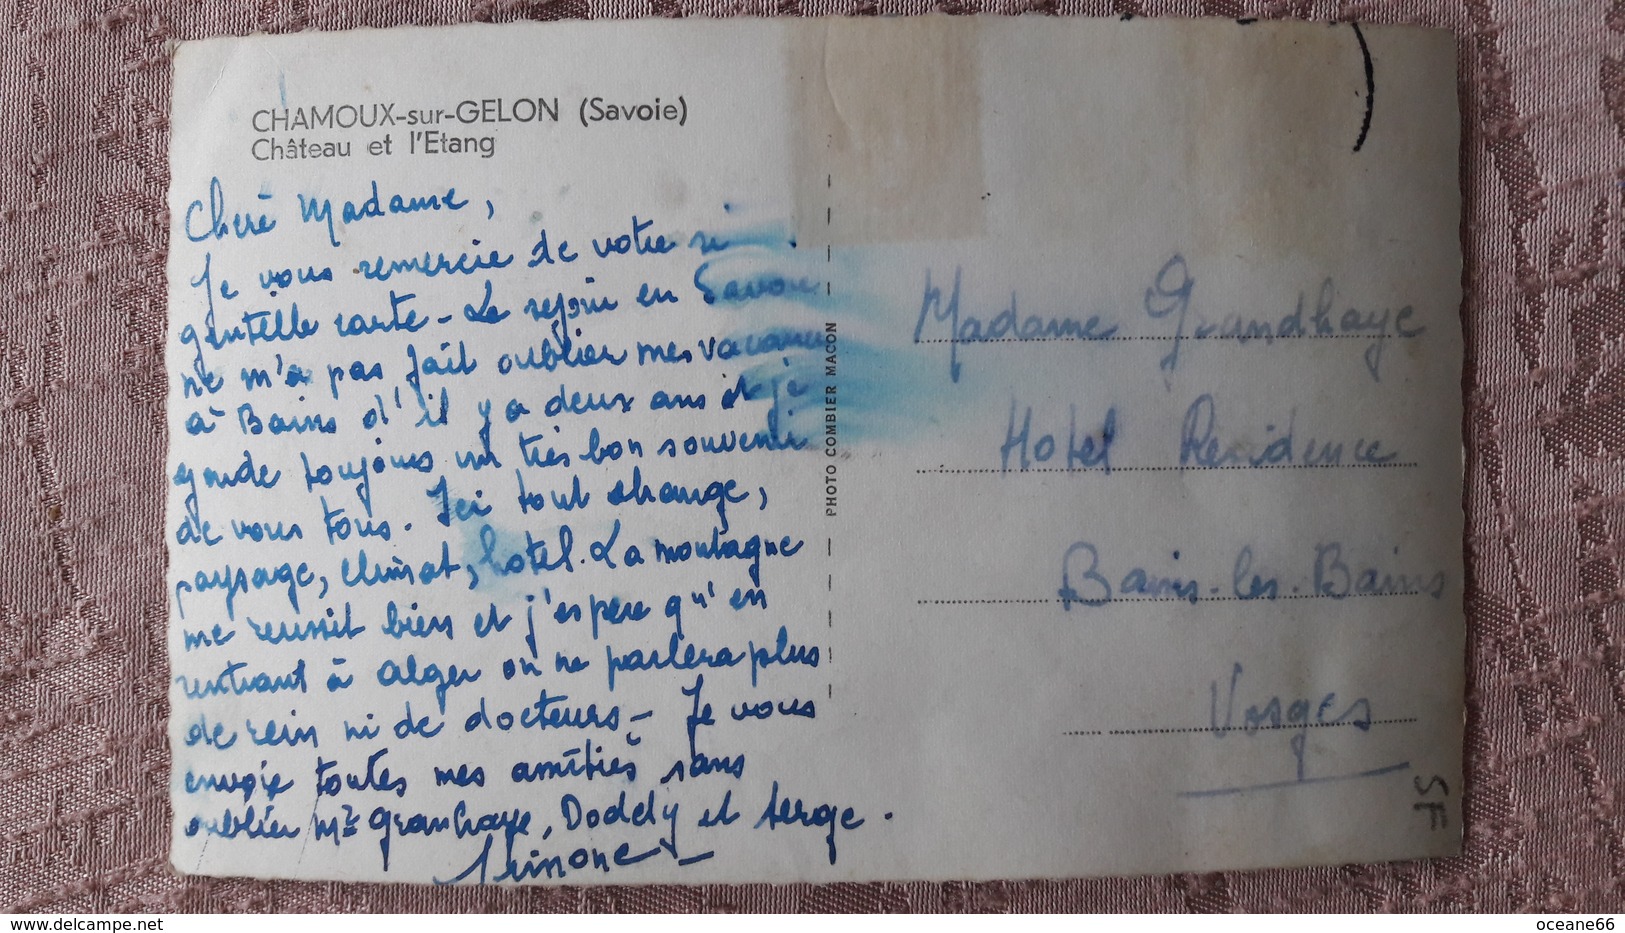 CHAMOUX-sur-GELON (Savoie)
Château et l'Etang
Chère Madame,
Je vous remercie de votre si
gentille carte - Le séjour en Savoie
ne m'a pas fait oublier mes vacances
à Bains d'il y a deux ans et je
garde toujours un très bon souvenir
de vous tous. Ici tout change,
paysage, climat, hotel. La montagne
me reussit bien et j'espere qu'en
rentrant à Alger on ne parlera plus
de rein ni de docteurs - Je vous
envoie toutes mes amitiés sans
oublier Mr Grandhaye, Doddy et Serge.
Simone
PHOTO COMBIER MACON
Madame Grandhaye
Hotel Residence
Bains-les-Bains
Vosges
SF
oceane66